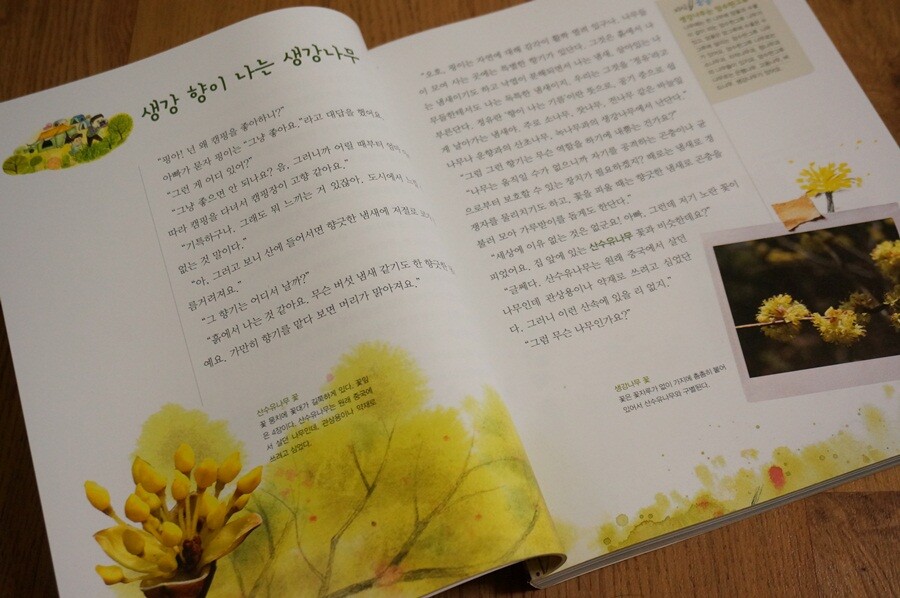 생강 향이 나는 생강나무
"핑아! 넌 왜 캠핑을 좋아하니?"
아빠가 묻자 핑이는 "그냥 좋아요."라고 대답을 했어요.
"그런 게 어디 있어?"
"그냥 좋으면 안 되나요? 음, 그러니까 어릴 때부터
따라 캠핑을 다녀서 캠핑장이 고향 같아요."
"기특하구나. 그래도 뭐 느끼는 거 있잖아. 도시에서
없는 것 말이다."
"아, 그러고 보니 산에 들어서면 향긋한 냄새에 저절로
름거려져요."
"그 향기는 어디서 날까?"
"흙에서 나는 것 같아요. 무슨 버섯 냄새 같기도 한 향긋한
예요. 가만히 향기를 맡다 보면 머리가 맑아져요."
산수유나무 꽃
꽃 뭉치에 꽃대가 길쭉하게 있다. 꽃잎
은 4장이다. 산수유나무는 원래 중국에
서 살던 나무인데, 관상용이나 약재로
쓰려고 심었다.
"오호, 핑이는 자연에 대해 감각이 활짝 열려 있구나. 나무들
이 모여 사는 곳에는 특별한 향기가 있단다. 그것은 흙에서 나
는 냄새이기도 하고 낙엽이 분해되면서 나는 냄새, 살아있는 나
무들한테서도 나는 독특한 냄새이지. 우리는 그것을 '정유'라고
부른단다. 정유란 '향이 나는 기름'이란 뜻으로, 공기 중으로 쉽
게 날아가는 냄새야. 주로 소나무, 잣나무, 전나무 같은 바늘잎
나무나 운향과의 산초나무, 녹나무과의 생강나무에서 난단다."
"그럼 그런 향기는 무슨 역할을 하기에 내뿜는 건가요?"
"나무는 움직일 수가 없으니까 자기를 공격하는 곤충이나 균
으로부터 보호할 수 있는 장치가 필요하겠지? 때로는 냄새로 경
쟁자를 물리치기도 하고, 꽃을 피울 때는 향긋한 냄새로 곤충을
불러 모아 가루받이를 돕게도 한단다."
"세상에 이유 없는 것은 없군요! 아빠, 그런데 저기 노란 꽃이
피었어요. 집 앞에 있는 산수유나무 꽃과 비슷한데요?"
"글쎄다. 산수유나무는 원래 중국에서 살던
나무인데 관상용이나 약재로 쓰려고 심었단
다. 그러니 이런 산속에 있을 리 없지."
"그럼 무슨 나무인가요?"
생강나무 꽃
꽃은 꽃자루가 없이 가지에 촘촘히 붙어
있어서 산수유나무와 구별된다.